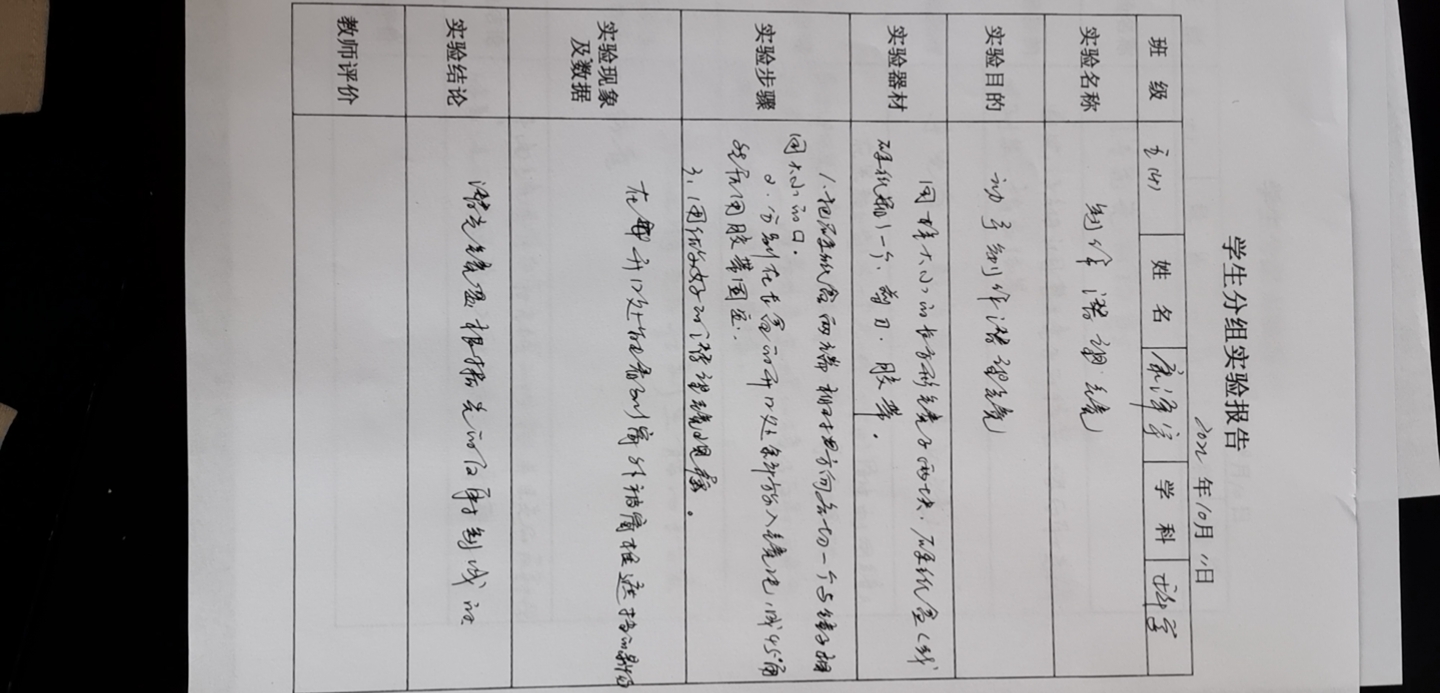 学生分组实验报告
2022年10月11日
班 级 姓 名 学 科 科学
实验名称 制作潜望镜
实验目的 动手制作潜望镜
实验器材 同样大小的长方形镜子两块,硬纸盒(或
硬纸 1个、剪刀、胶带。
实验步骤 1、把硬纸盒两端相 方向各切一个与镜子相
同大小的口。
2、分别在长盒的开口处 放入镜 ,成45°角
然后用胶带固定.
3、用 好的潜望镜观察。
实验现象
及数据 在 开口处能看到窗外被窗 遮挡的
实验结论 潜望镜是根据光的反射制成的
教师评价